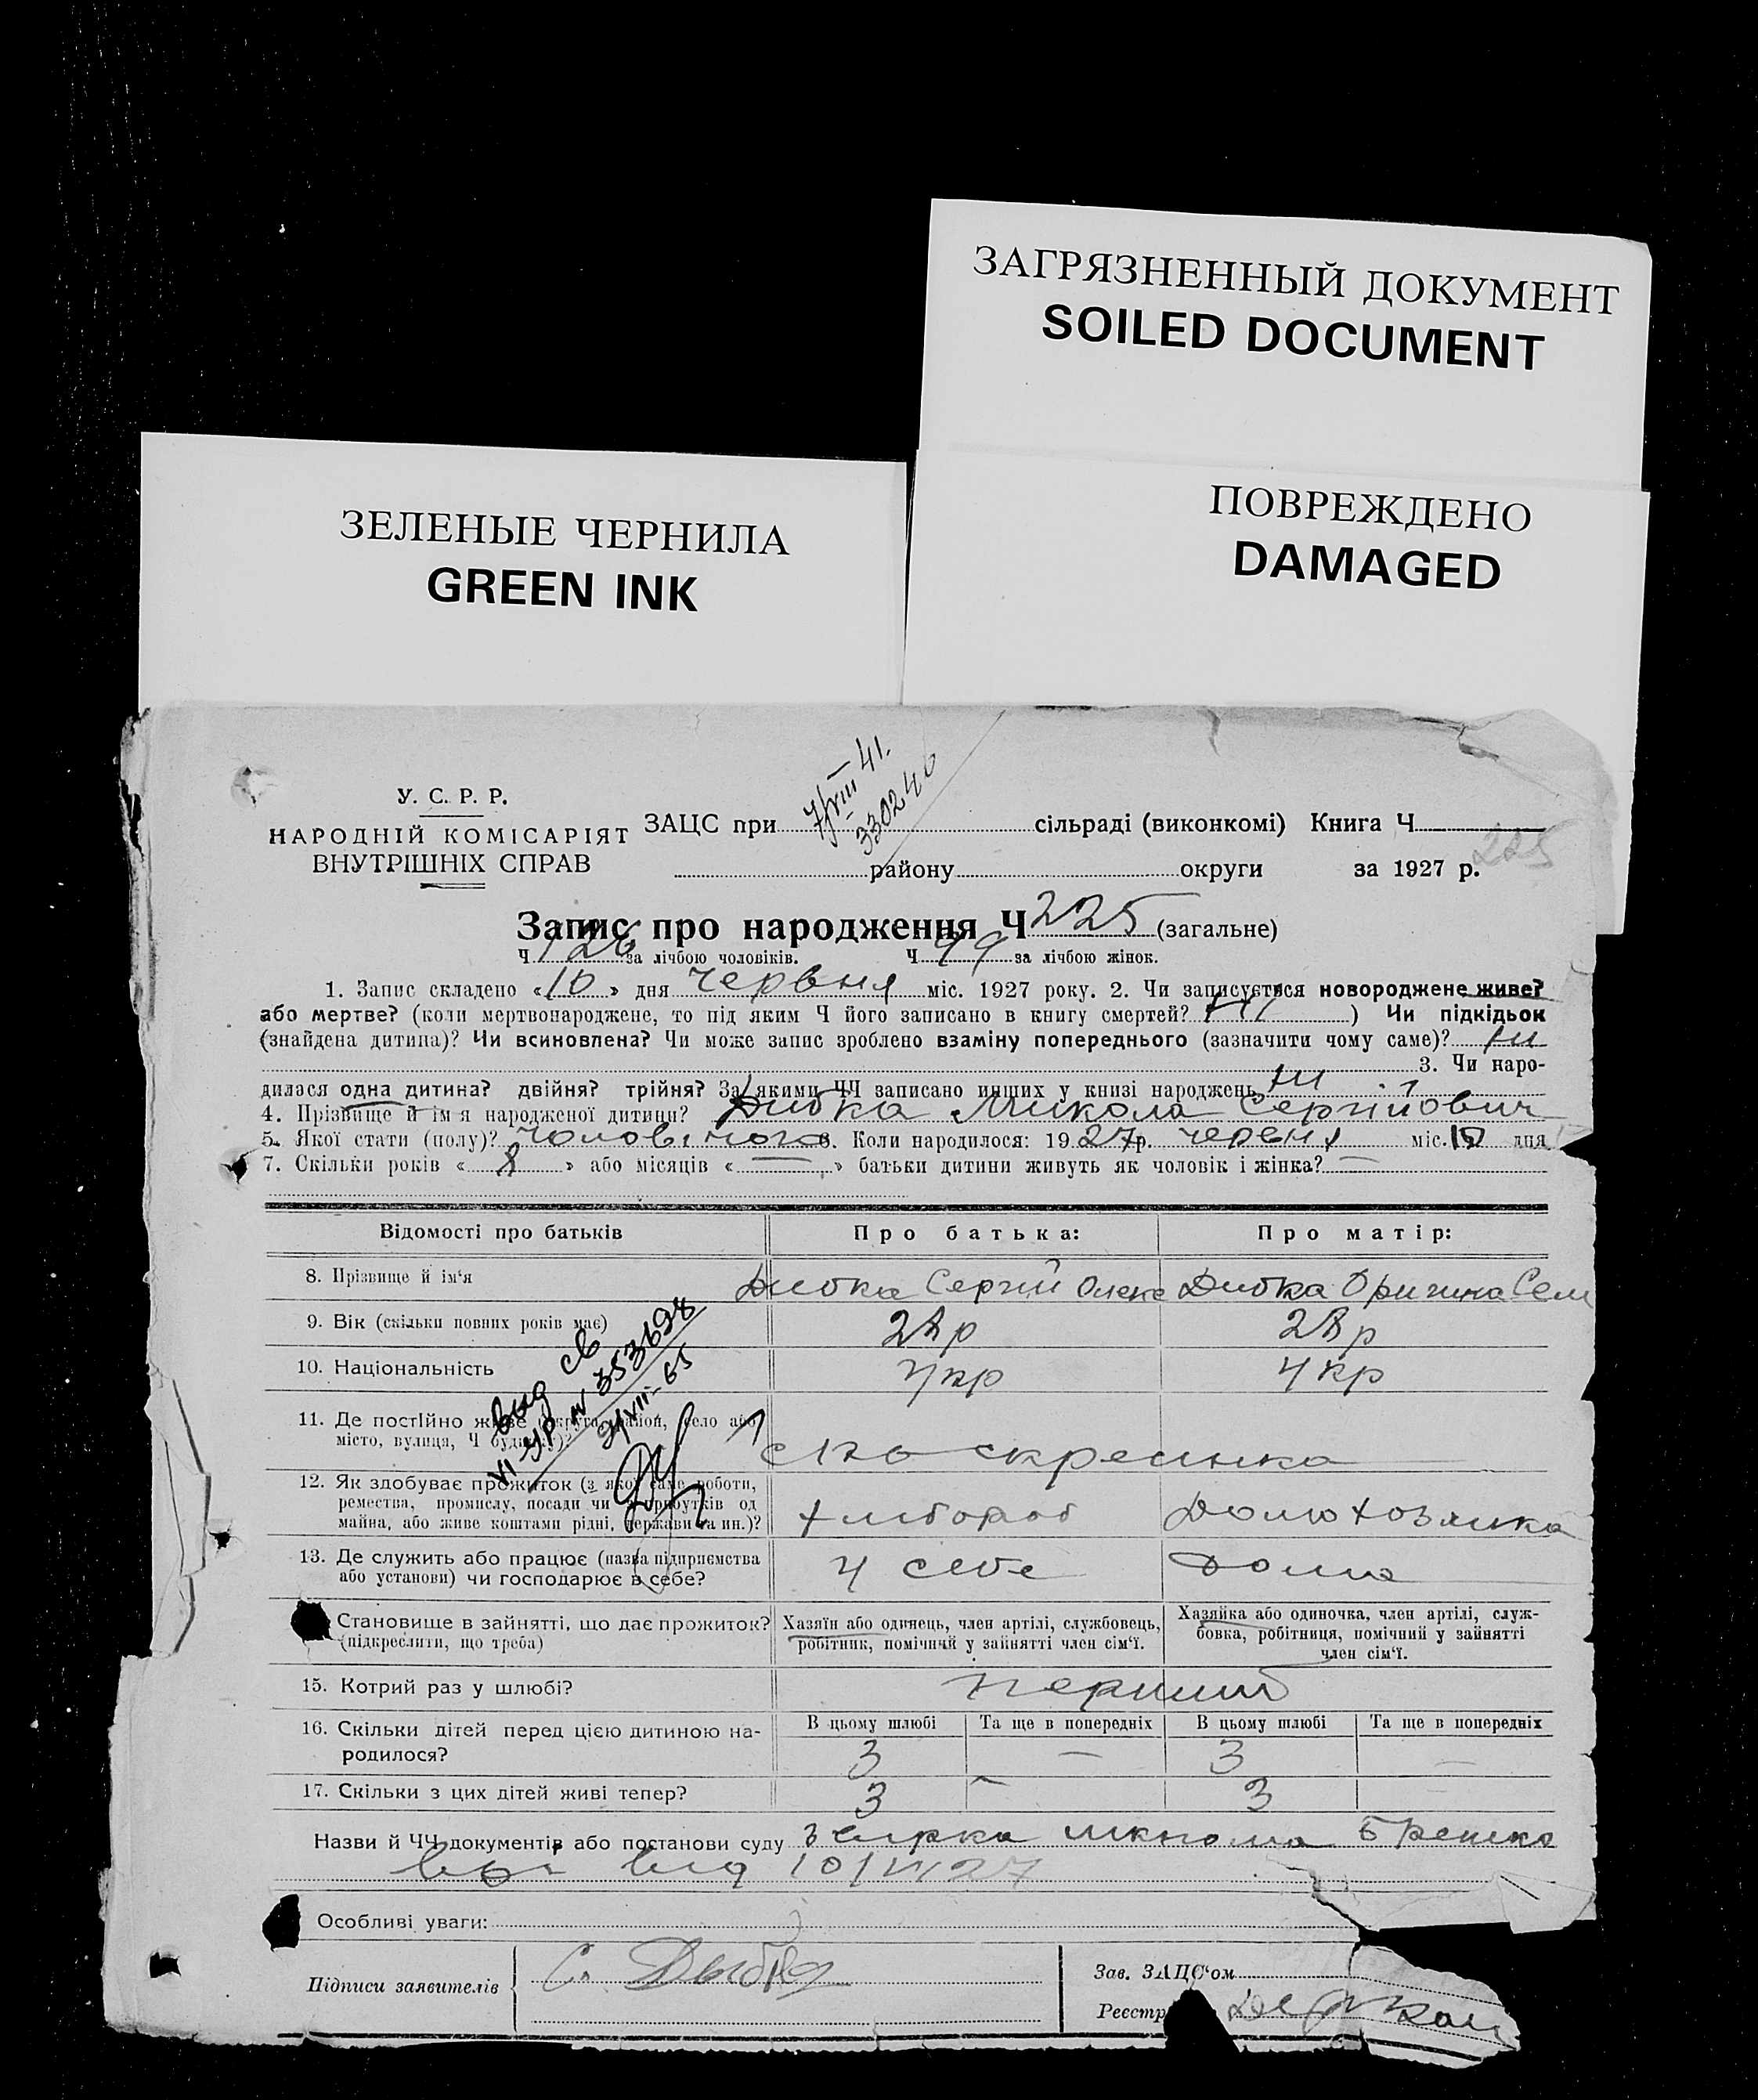 ЗАГРЯЗНЕННЫЙ ДОКУМЕНТ
SOILED DOCUMENT
ЗЕЛЕНЫЕ ЧЕРНИЛА
GREEN INK
ПОВРЕЖДЕНО
DAMAGED
7/VIII 41.
330240
У. С. Р. Р.
НАРОДНІЙ КОМІСАРІЯТ
ВНУТРІШНІХ СПРАВ
ЗАЦС при сільраді (виконкомі) Книга Ч
району округи за 1927 р.
225
Запис про народження Ч 225 (загальне)
Ч 126 за лічбою чоловіків. Ч 99 за лічбою жінок.
1. Запис складено «10» дня червня міс. 1927 року. 2. Чи записується новороджене живе?
або мертве? (коли мертвонароджене, то під яким Ч його записано в книгу смертей? ні ) Чи підкідьок
(знайдена дитина)? Чи всиновлена? Чи може запис зроблено взаміну попереднього (зазначити чому саме)? ни
3. Чи наро-
дилася одна дитина? двійня? трійня? За якими ЧЧ записано инших у книзі народжень ни
4. Прізвище й ім'я народженої дитини? Дибка Микола Сергійович
5. Якої стати (полу)? чоловічого 6. Коли народилося: 1927р. червня міс. 10 дня
7. Скільки років « 8 » або місяців « — » батьки дитини живуть як чоловік і жінка? —
Відомості про батьків Про батька: Про матір:
8. Прізвище й ім'я Дибка Сергій Олекс Дибка Оришка Сем
9. Вік (скільки повних років має) 28р 28р
10. Національність укр укр
выд св
VI-УР № 353698
2/VII-65
11. Де постійно живе (округа, район, село або
місто, вулиця, Ч будинку)?
12. Як здобуває прожиток (з якої саме роботи,
ремества, промислу, посади чи з прибутків од
майна, або живе коштами рідні, держави та ин.)? хлибороб Домохозяика
13. Де служить або працює (назва підприємства
або установи) чи господарює в себе? у себе Дома
Становище в зайнятті, що дає прожиток?
(підкреслити, що треба)
Хазяїн або одинець, член артілі, службовець,
робітник, помічний у зайнятті член сім'ї.
Хазяйка або одиночка, член артілі, служ-
бовка, робітниця, помічний у зайнятті
член сім'ї.
15. Котрий раз у шлюбі? перший
16. Скільки дітей перед цією дитиною на-
родилося?
В цьому шлюбі Та ще в попередніх В цьому шлюбі Та ще в попередніх
3 — 3 —
17. Скільки з цих дітей живі тепер? 3 — 3
Назви й ЧЧ документів або постанови суду
від 10/VI 27
Особливі уваги:
Підписи заявителів С. Дыбка
Зав. ЗАЦС'ом
Реєстр